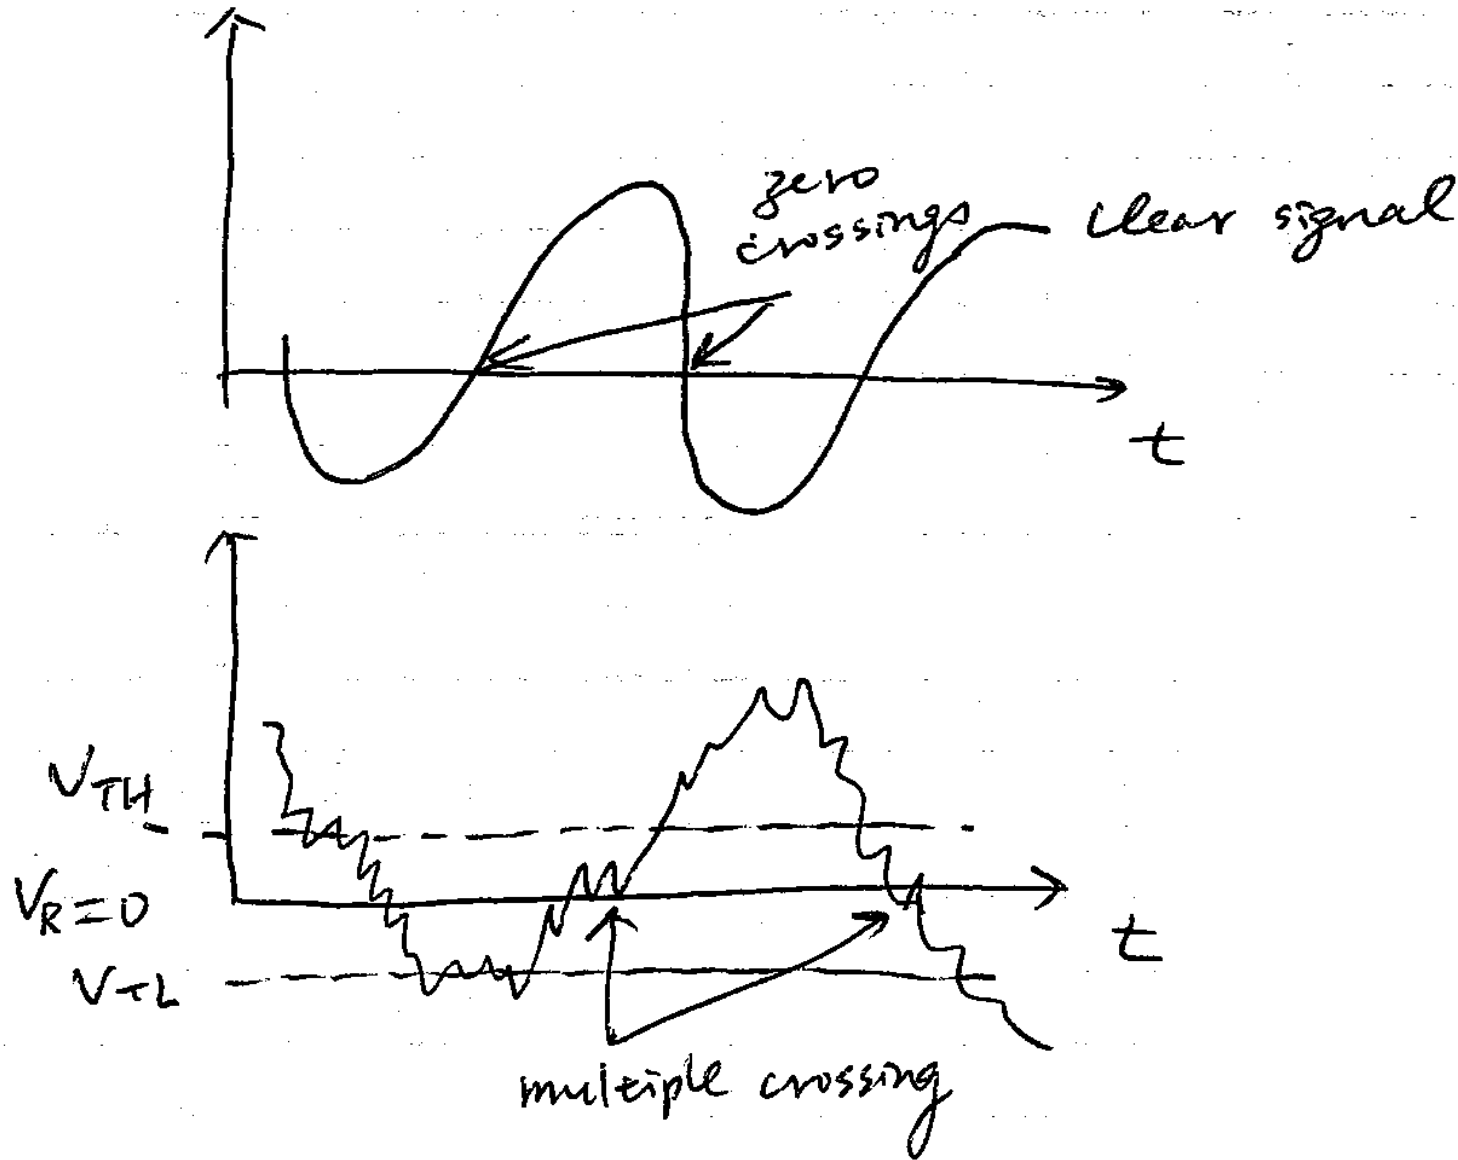 zero
crossings
clear signal
t
VTH
VR=0
t
VTL
multiple crossing